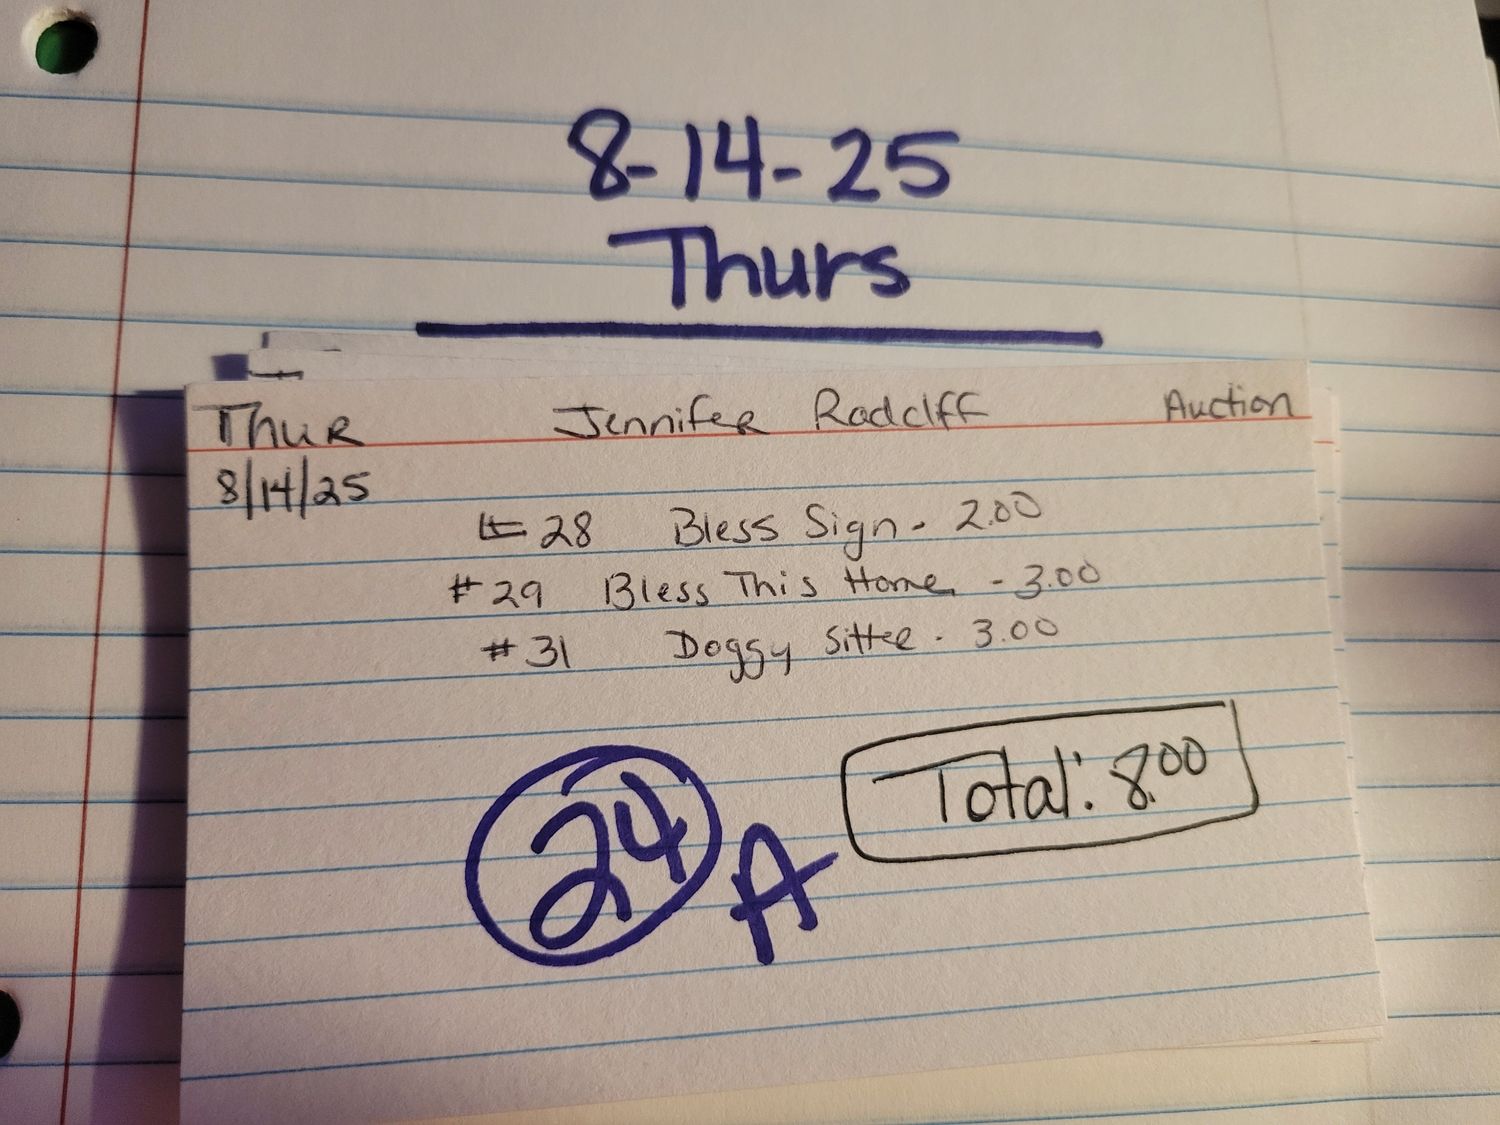 8-14-25
Thurs
Thur Jennifer Radclff Auction
8/14/25
# 28 Bless Sign - 2.00
# 29 Bless This Home - 3.00
# 31 Doggy Sitter - 3.00
Total: 8.00
24 A